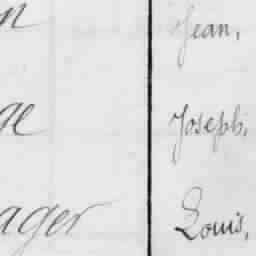 n Jean,
ge Joseph,
ager Louis,